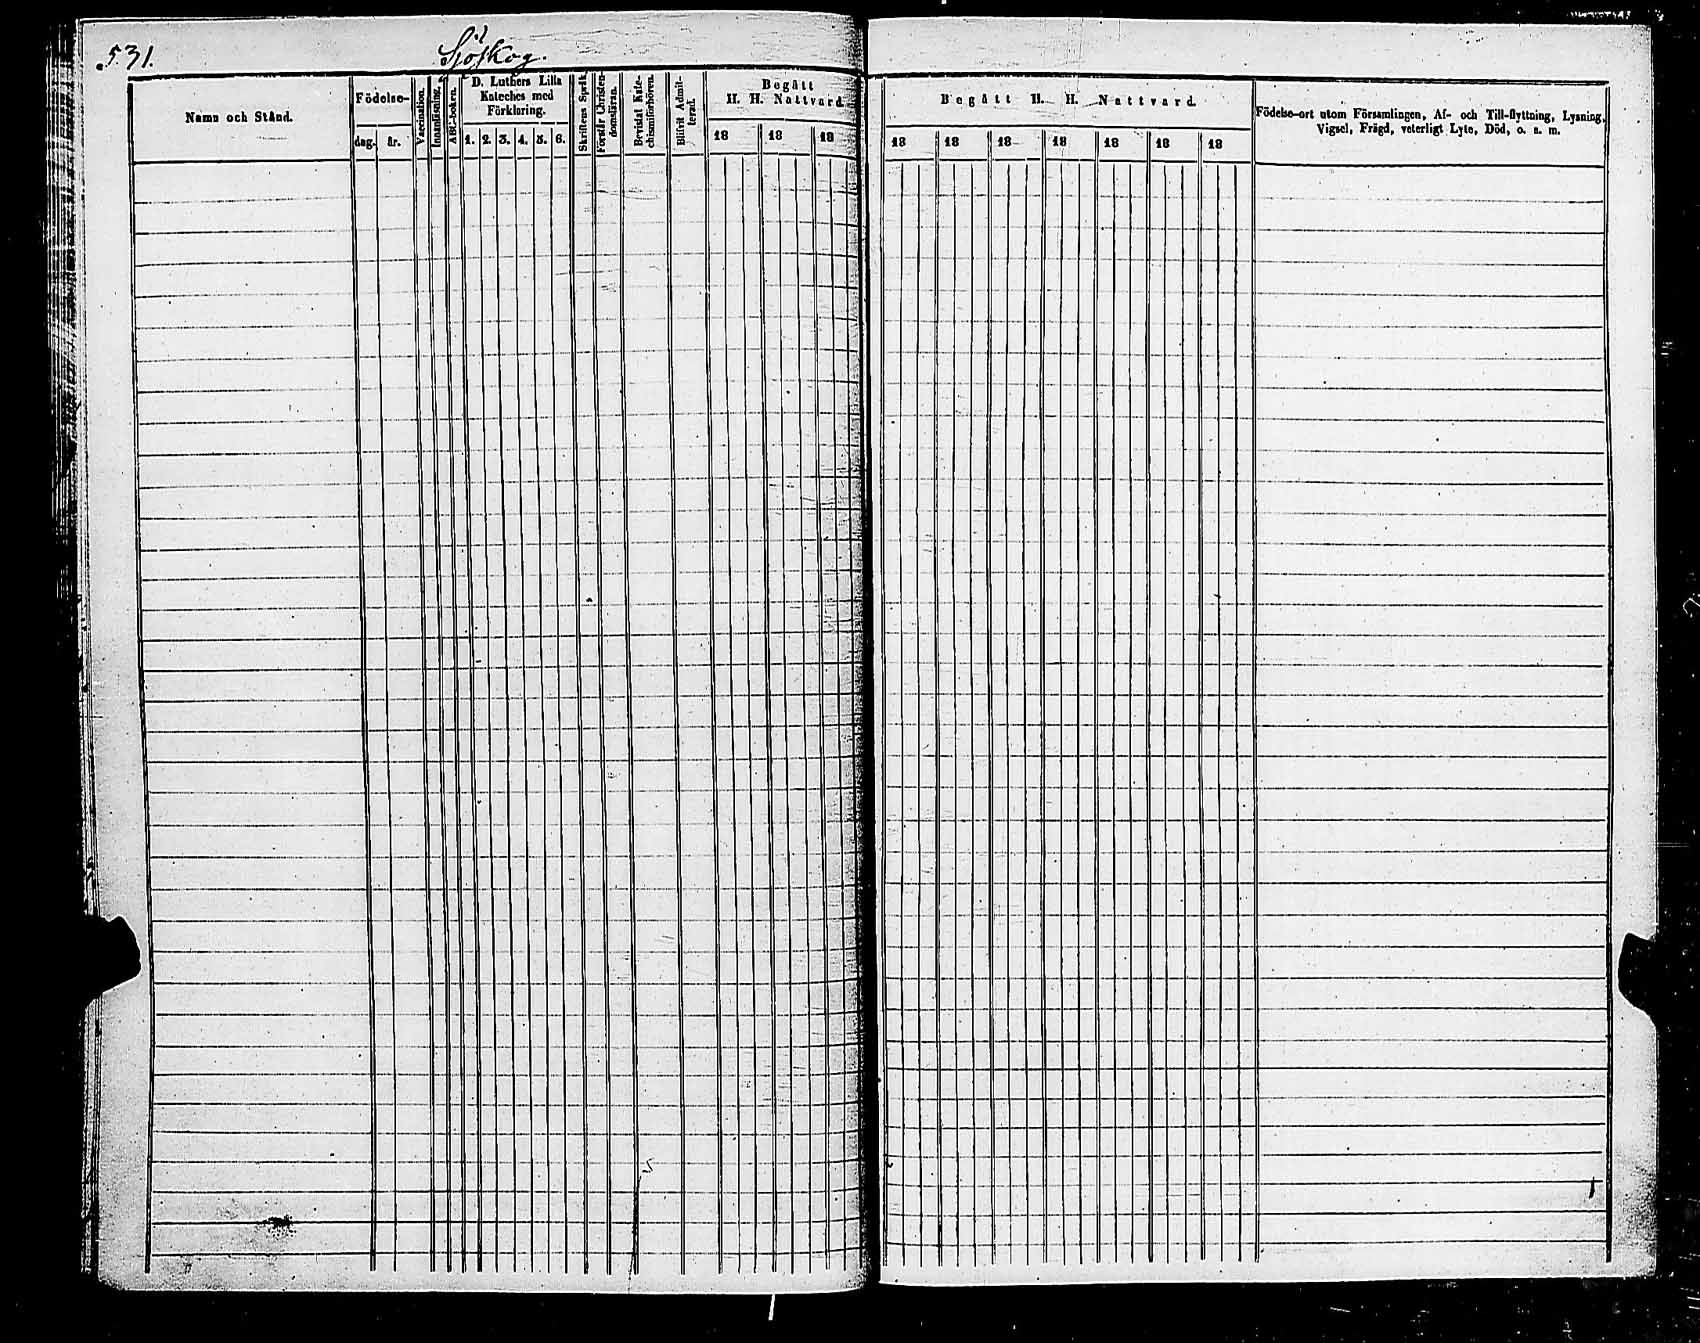 531.
Sjöskog.
Namn och Stånd.
Födelse-
dag.
år.
Vaccination.
Innanläsning.
ABC-boken.
D. Luthers Lilla
Kateches med
Förklaring.
1. 2. 3. 4. 5. 6.
Skriftens Språk.
Förstår Christen-
domsläran.
Bevistat Kate-
chismiförhören.
Blifvit Admit-
terad.
Begått
H. H. Nattvard.
18 18 18
Begått H. H. Nattvard.
18 18 18 18 18 18 18
Födelse-ort utom Församlingen, Af- och Till-flyttning, Lysning,
Vigsel, Frägd, veterligt Lyte, Död, o. s. m.